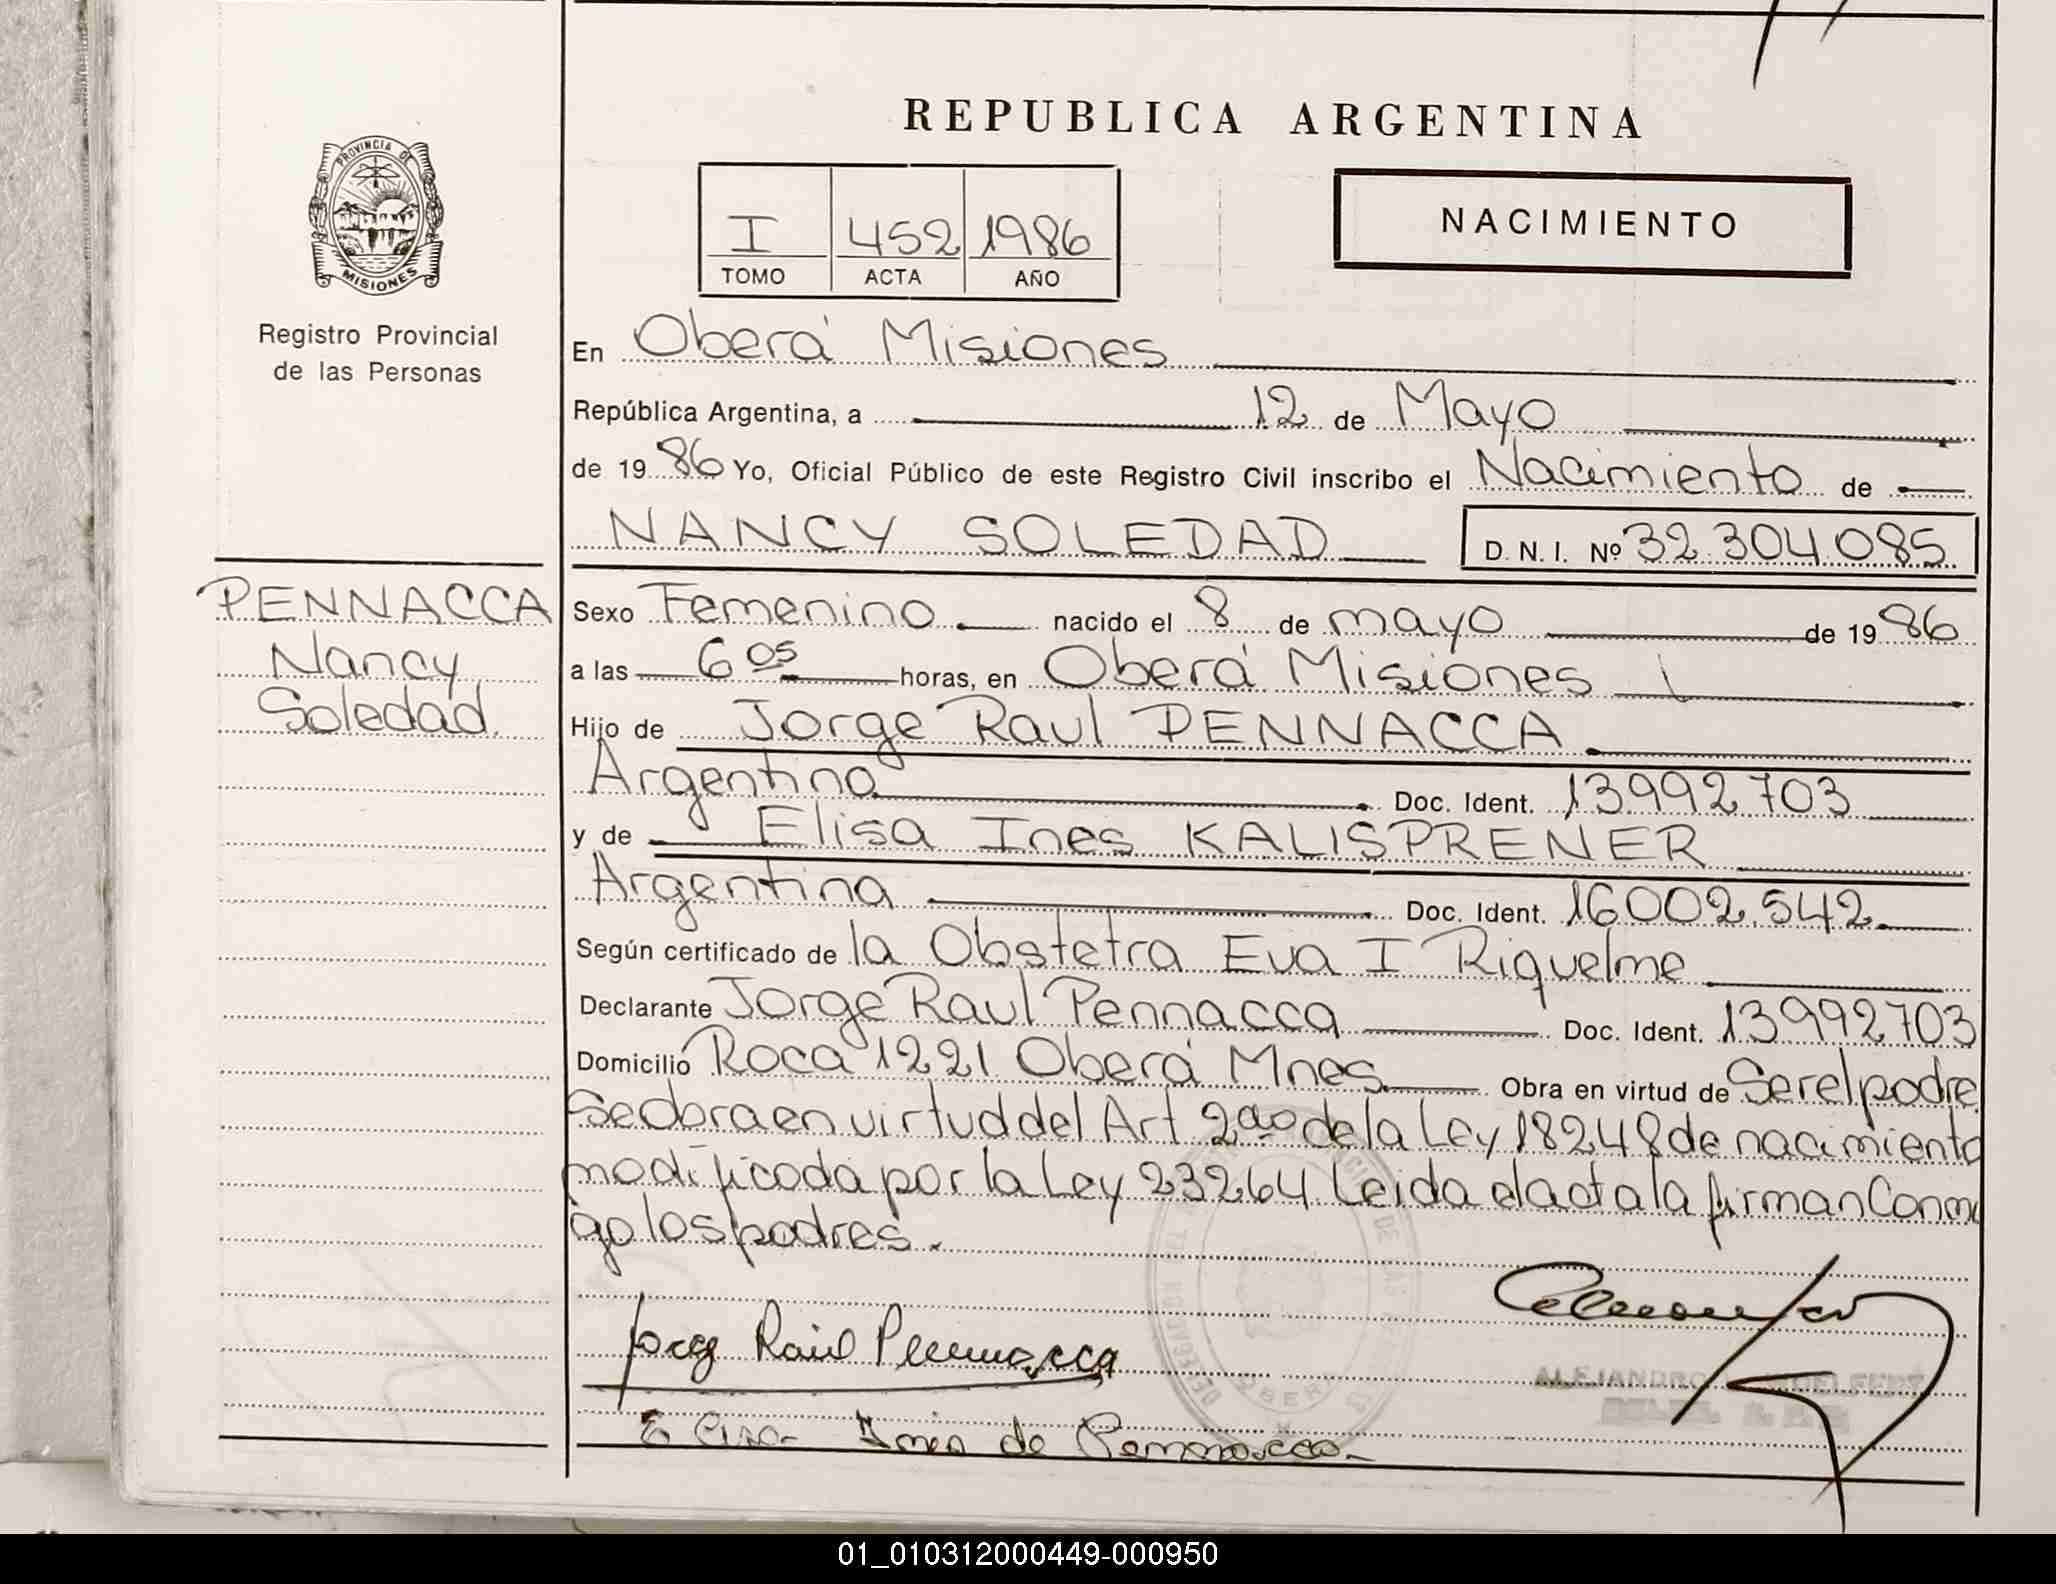 REPUBLICA ARGENTINA
PROVINCIA DE
MISIONES
Registro Provincial
de las Personas
I 452 1986
TOMO ACTA AÑO
NACIMIENTO
En Oberá Misiones
República Argentina, a 12 de Mayo
de 1986 Yo, Oficial Público de este Registro Civil inscribo el Nacimiento de
NANCY SOLEDAD D.N.I. Nº 32.304.085
PENNACCA
Nancy
Soledad
Sexo Femenino nacido el 8 de mayo de 1986
a las 6 05 horas, en Oberá Misiones
Hijo de Jorge Raul PENNACCA
Argentino Doc. Ident. 13992703
y de Elisa Ines KALISPRENER
Argentina Doc. Ident. 16002.542
Según certificado de la Obstetra Eva I Riquelme
Declarante Jorge Raul Pennacca Doc. Ident. 13992703
Domicilio Roca 1221 Oberá Mnes Obra en virtud de Ser el padre
Se obra en virtud del Art 2do de la Ley 18248 de nacimiento
modificada por la Ley 23264 Leida el acta la firman Conmi
go los padres.
Raul Pennacca
Elisa Ines de Pennacca
ALEJANDRO
01_010312000449-000950